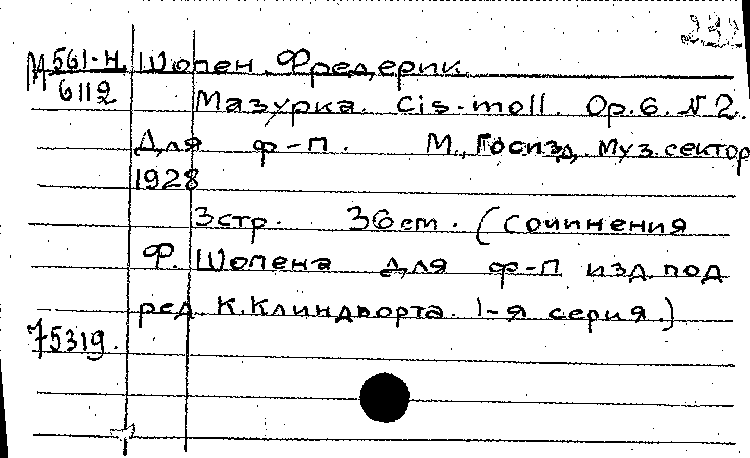 232
М 561-Н Шопен Фредерик
6112
Мазурка. Cis-moll. Op.6. N2.
Для ф-п. М., Госизд, Муз.сектор
1928
3стр. 36см. (Сочинения
Ф. Шопена для ф-п изд. под
ред. К.Клиндворта. 1-я серия.)
75319.